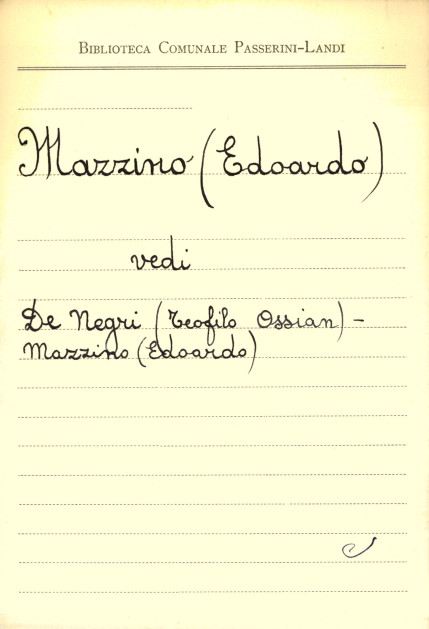 Biblioteca Comunale Passerini-Landi
Mazzino (Edoardo)
vedi
De Negri (Teofilo Ossian) -
Mazzino (Edoardo)